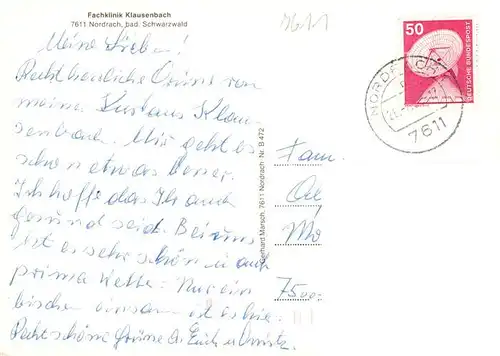 Fachklinik Klausenbach
7611 Nordrach, bad. Schwarzwald
7611
50
DEUTSCHE BUNDESPOST
NORDRACH
7611
Meine Lieben!
Recht herzliche Grüsse von
meinem Kurhaus Klau-
senbach. Mir geht es
schon etwas besser.
Ich hoffe das Ihr auch
gesund seid. Bei uns
ist es sehr schön u. auch
prima Wetter. Nur ein
bischen einsam ist es hier.
Recht schöne Grüsse an Euch u.
Gerhard Marsch, 7611 Nordrach Nr. B 472
Fam.
Oe
Mo
7500